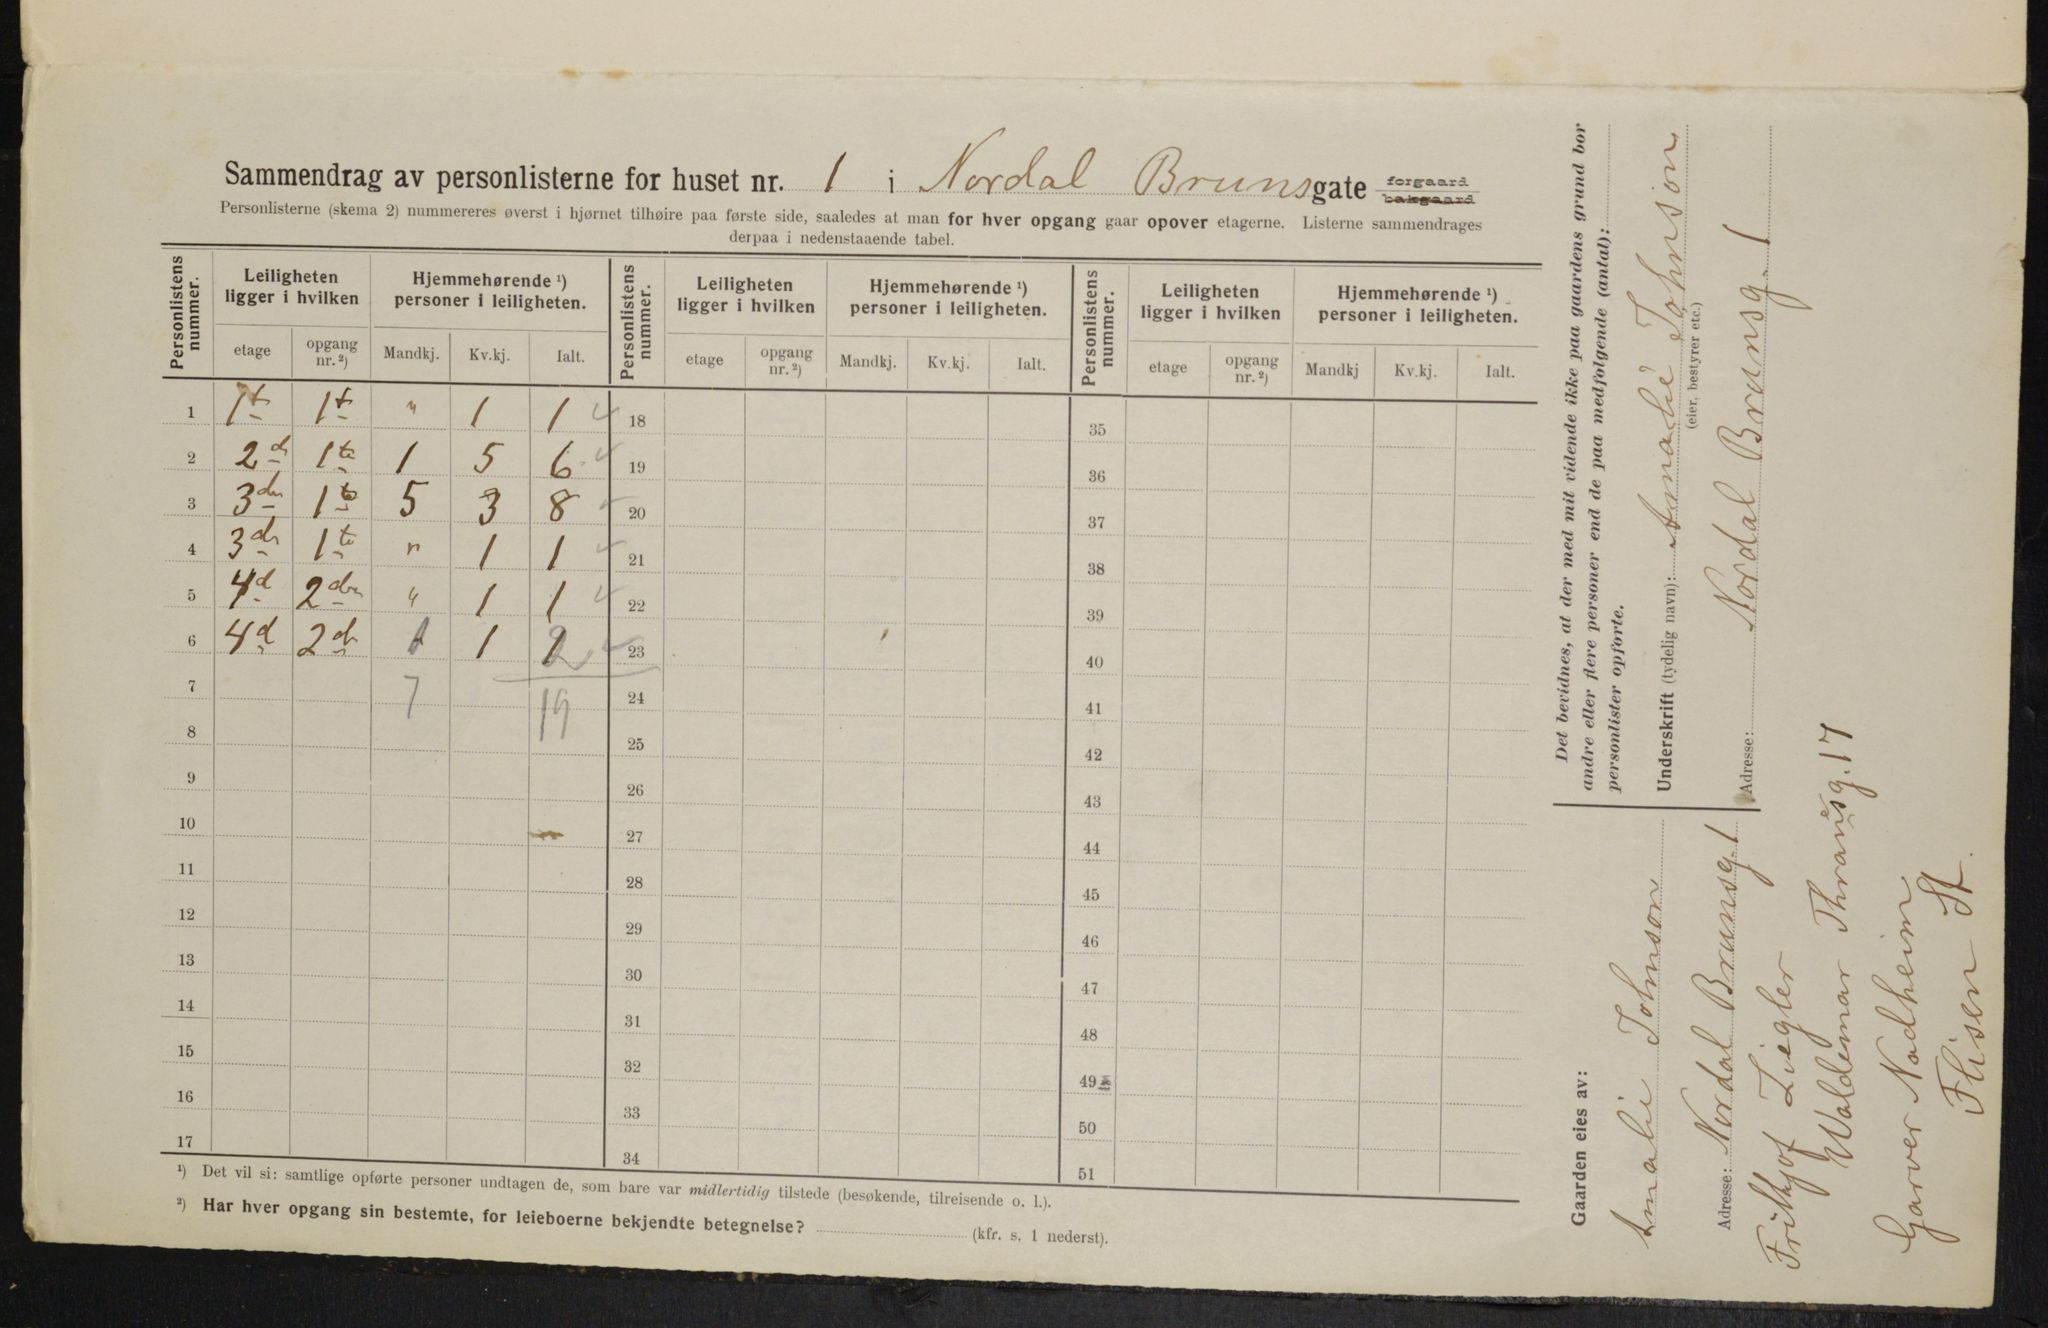 Sammendrag av personlisterne for huset nr. 1 i Nordal Brunsgate forgaard bakgaard
Personlisterne (skema 2) nummereres øverst i hjørnet tilhøire paa første side, saaledes at man for hver opgang gaar opover etagerne. Listerne sammendrages
derpaa i nedenstaaende tabel.
Personlistens nummer. Leiligheten ligger i hvilken Hjemmehørende ¹) personer i leiligheten. Personlistens nummer. Leiligheten ligger i hvilken Hjemmehørende ¹) personer i leiligheten. Personlistens nummer. Leiligheten ligger i hvilken Hjemmehørende ¹) personer i leiligheten.
etage opgang nr. ²) Mandkj. Kv.kj. Ialt. etage opgang nr. ²) Mandkj. Kv.kj. Ialt. etage opgang nr. ²) Mandkj Kv.kj. Ialt.
1 1t 1t " 1 1 18 35
2 2d 1te 1 5 6 19 36
3 3de 1te 5 3 8 20 37
4 3de 1te " 1 1 21 38
5 4d 2den " 1 1 22 39
6 4d 2d 1 1 2 23 40
7 7 19 24 41
8 25 42
9 26 43
10 27 44
11 28 45
12 29 46
13 30 47
14 31 48
15 32 49
16 33 50
17 34 51
¹) Det vil si: samtlige opførte personer undtagen de, som bare var midlertidig tilstede (besøkende, tilreisende o. l.).
²) Har hver opgang sin bestemte, for leieboerne bekjendte betegnelse? (kfr. s. 1 nederst).
Det bevidnes, at der med mit vidende ikke paa gaardens grund bor
andre eller flere personer end de paa medfølgende (antal):
personlister opførte.
Underskrift (tydelig navn): Amalie Johnson
(eier, bestyrer etc.)
Adresse: Nordal Brunsg. 1
Gaarden eies av:
Amalie Johnson
Adresse: Nordal Brunsg 1
Frithjof Ziegler
Waldemar Thranesg. 17
Garver Nadheim
Flisen St.